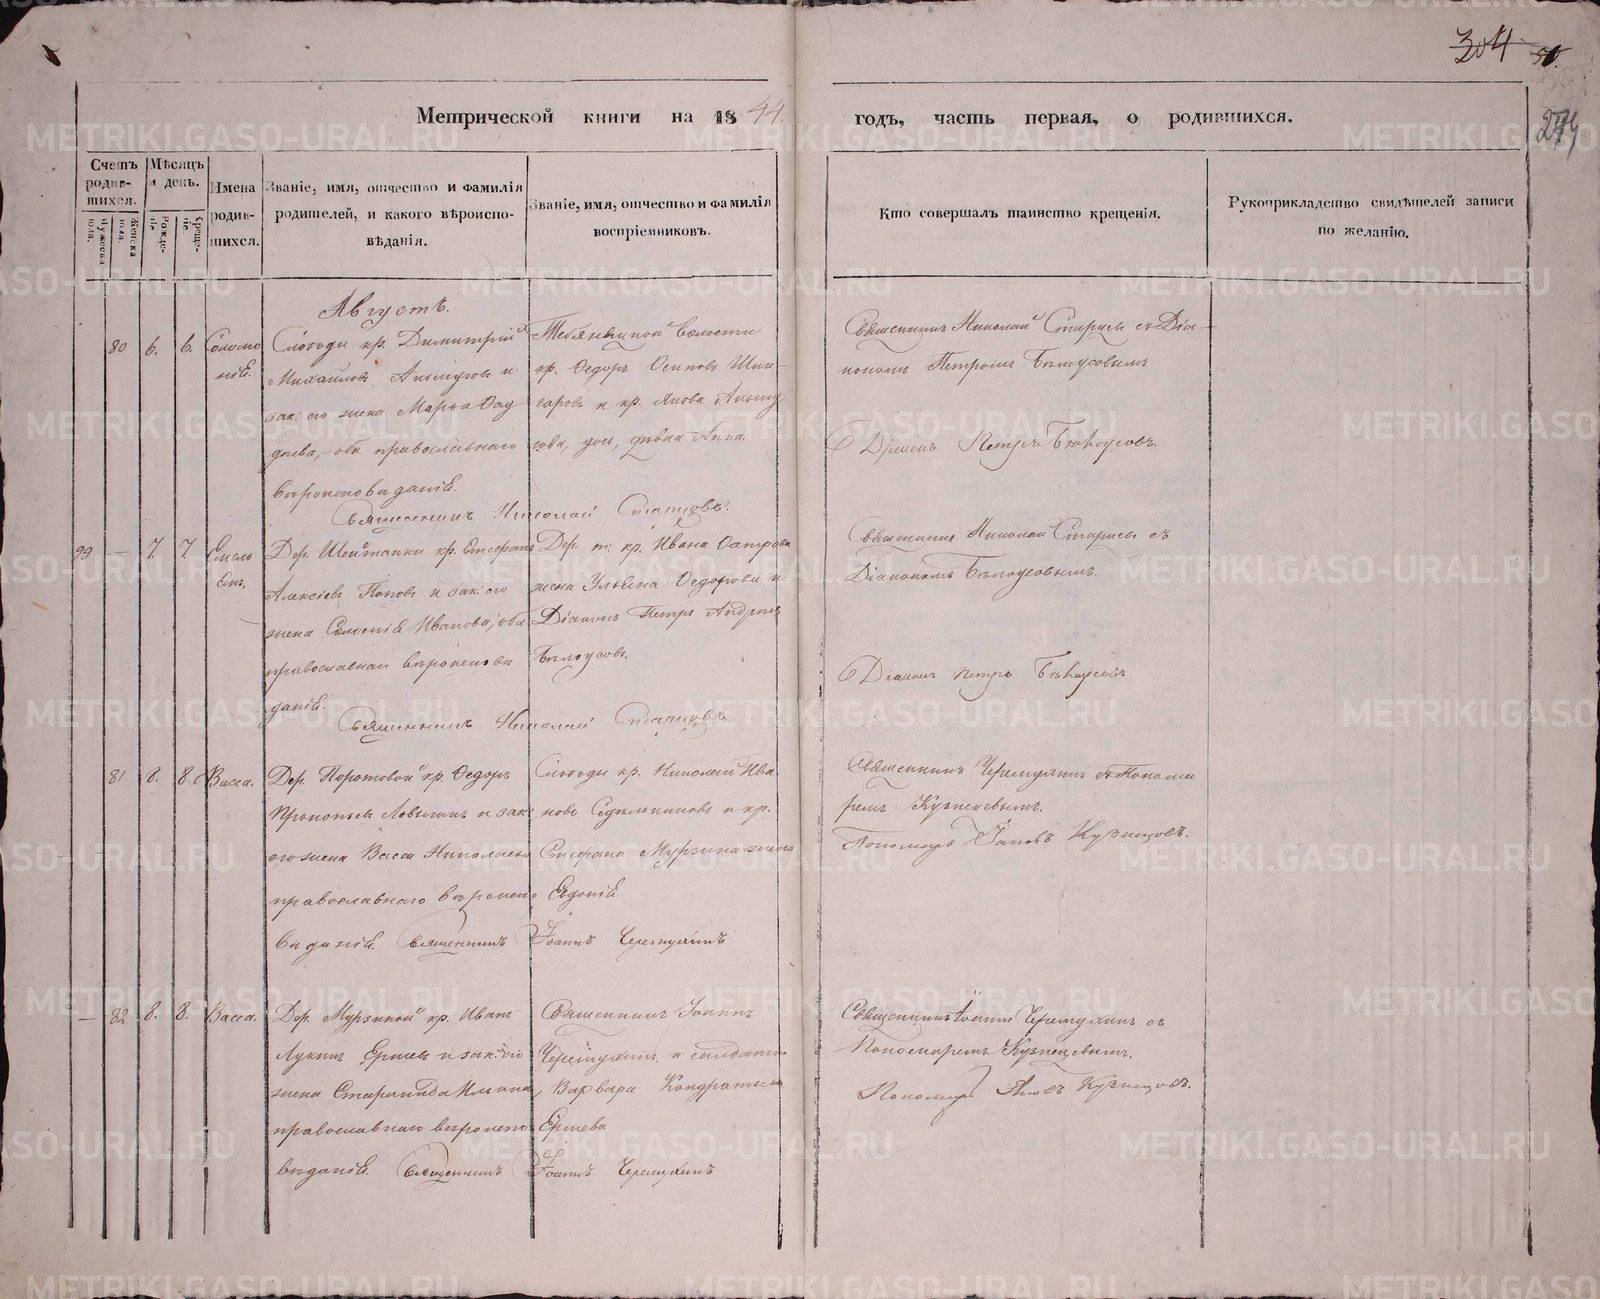 304 50.
274
Метрической книги на 1844. годъ, часть первая, о родившихся.
Счетъ родив-шихся.
Мужеска пола.
Женска пола.
Мѣсяцъ и день.
Рожде-нія.
Креще-нія.
Имена родив-шихся.
Званіе, имя, отчество и фамилія
родителей, и какого вѣроиспо-
вѣданія.
Званіе, имя, отчество и фамилія
воспріемниковъ.
Кто совершалъ таинство крещенія.
Рукоприкладство свидѣтелей записи
по желанію.
Августъ.
80 6. 6. Соломо
нія.
Слободы кр. Димитрій
Михайловъ и
зак: его жена Марѳа Ѳад
деева, оба православнаго
вѣроисповѣданія.
волости
кр. Ѳедоръ Осиповъ
и кр. Якова
дѣвка Анна.
Священникъ Николай Старцевъ съ Діа-
кономъ Петромъ Бѣлоусовымъ
Діаконъ Петръ Бѣлоусовъ.
Священникъ Николай Старцовъ.
99 — 7. 7
Дер. Шейтанки кр. Стефанъ
Алексѣевъ Поповъ и зак: его
жена Иванова, оба
православнаго вѣроисповѣ
данія.
Дер. т: кр. Ивана
жена Ульяна Ѳедорова и
Діаконъ Петръ Андреевъ
Бѣлоусовъ.
Священникъ Николай Старцевъ съ
Діакономъ Бѣлоусовымъ.
Діаконъ Петръ Бѣлоусовъ
Священникъ Николай Старцовъ
81 8. 8. Васса.
Дер. кр. Ѳедоръ
Прокопьевъ и зак:
его жена Васса Николаева
православнаго вѣроиспо
вѣданія. Священникъ Іоаннъ Черемухинъ
Слободы кр. Николай Ива
новъ и кр.
Стефана Мурзина жена
Евдокія
Священникъ Черемухинъ съ Понома
ремъ Кузнецовымъ.
Пономарь Іаковъ Кузнецовъ.
— 82 8. 8. Васса.
Дер. Мурзиной кр. Иванъ
Лукинъ Ершовъ и зак: его
жена
православнаго вѣроиспо
вѣданія. Священникъ Іоаннъ Черемухинъ
Священникъ Іоаннъ
Черемухинъ и солдатка
Варвара Кондратьева
Ершева
Священникъ Іоаннъ Черемухинъ съ
Пономаремъ Кузнецовымъ.
Пономарь Яковъ Кузнецовъ.
METRIKI.GASO-URAL.RU